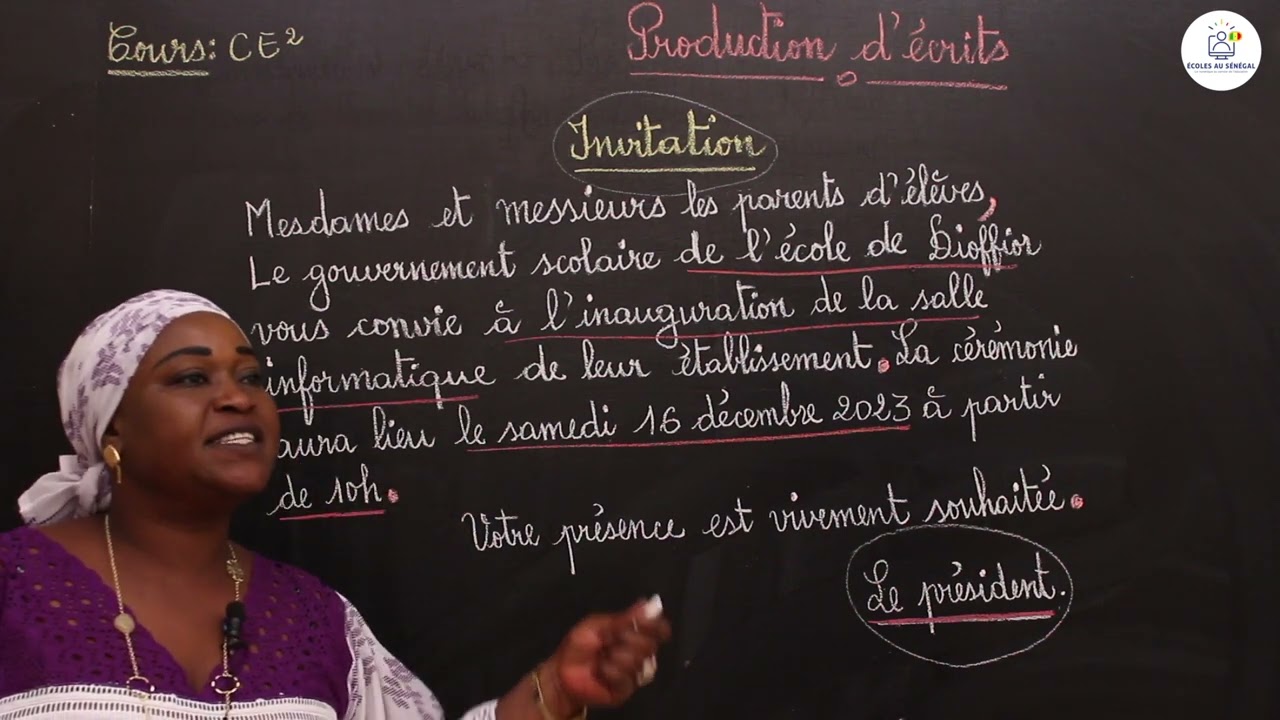 Cours: CE2
Production d'écrits
ÉCOLES AU SÉNÉGAL
Invitation
Mesdames et messieurs les parents d'élèves,
Le gouvernement scolaire de l'école de Dioffior
vous convie à l'inauguration de la salle
informatique de leur établissement. La cérémonie
aura lieu le samedi 16 décembre 2023 à partir
de 10h.
Votre présence est vivement souhaitée.
Le président.